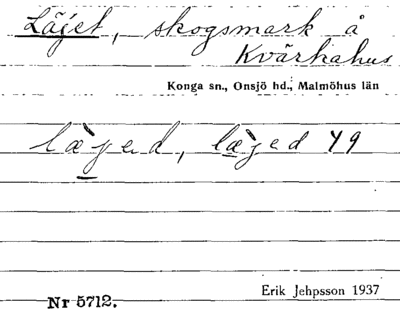 Läjet, skogsmark å
Kvärkahus
Konga sn., Onsjö hd., Malmöhus län
læ̀jed, læ̀jed 49
Erik Jehpsson 1937
Nr 5712.